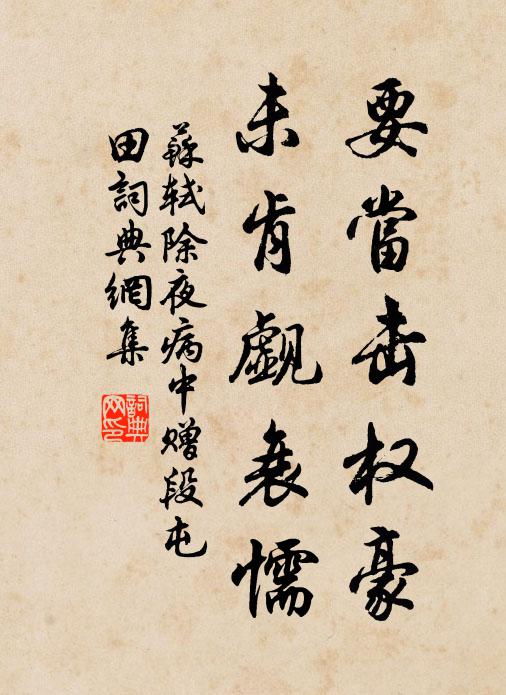 要當击权豪
未肯覰衰懦
蘇軾除夜病中赠段屯
田詞典網集
詞典
网印